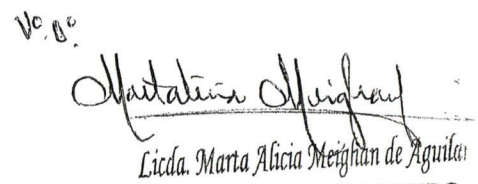 Vo. Bo.
Martalicia Meighan
Licda. Marta Alicia Meighan de Aguilar